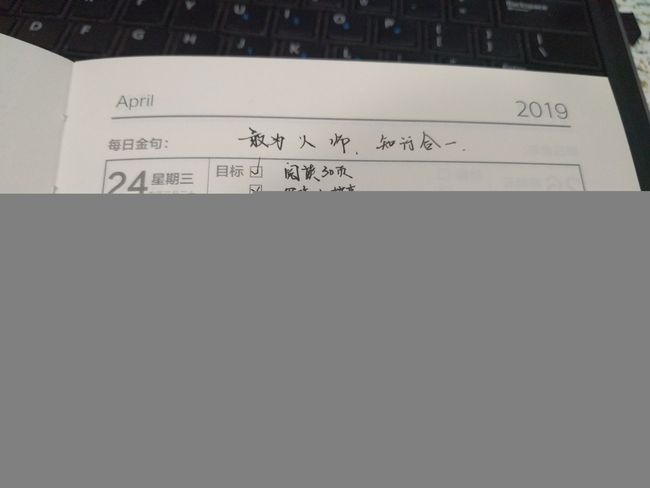 April
2019
每日金句： 敢为人师，知行合一.
24 星期三
目标 阅读30页